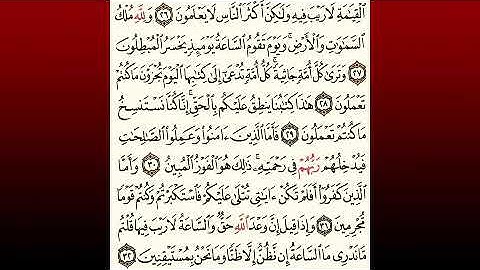 ٱلْقِيَٰمَةِ لَا رَيْبَ فِيهِ وَلَٰكِنَّ أَكْثَرَ ٱلنَّاسِ لَا يَعْلَمُونَ ٢٦ وَلِلَّهِ مُلْكُ
ٱلسَّمَٰوَٰتِ وَٱلْأَرْضِ ۚ وَيَوْمَ تَقُومُ ٱلسَّاعَةُ يَوْمَئِذٍ يَخْسَرُ ٱلْمُبْطِلُونَ
٢٧ وَتَرَىٰ كُلَّ أُمَّةٍ جَاثِيَةً ۚ كُلُّ أُمَّةٍ تُدْعَىٰٓ إِلَىٰ كِتَٰبِهَا ٱلْيَوْمَ تُجْزَوْنَ مَا كُنتُمْ
تَعْمَلُونَ ٢٨ هَٰذَا كِتَٰبُنَا يَنطِقُ عَلَيْكُم بِٱلْحَقِّ ۚ إِنَّا كُنَّا نَسْتَنسِخُ
مَا كُنتُمْ تَعْمَلُونَ ٢٩ فَأَمَّا ٱلَّذِينَ ءَامَنُوا۟ وَعَمِلُوا۟ ٱلصَّٰلِحَٰتِ
فَيُدْخِلُهُمْ رَبُّهُمْ فِى رَحْمَتِهِۦ ۚ ذَٰلِكَ هُوَ ٱلْفَوْزُ ٱلْمُبِينُ ٣٠ وَأَمَّا
ٱلَّذِينَ كَفَرُوٓا۟ أَفَلَمْ تَكُنْ ءَايَٰتِى تُتْلَىٰ عَلَيْكُمْ فَٱسْتَكْبَرْتُمْ وَكُنتُمْ قَوْمًا
مُّجْرِمِينَ ٣١ وَإِذَا قِيلَ إِنَّ وَعْدَ ٱللَّهِ حَقٌّ وَٱلسَّاعَةُ لَا رَيْبَ فِيهَا قُلْتُم
مَّا نَدْرِى مَا ٱلسَّاعَةُ إِن نَّظُنُّ إِلَّا ظَنًّا وَمَا نَحْنُ بِمُسْتَيْقِنِينَ ٣٢